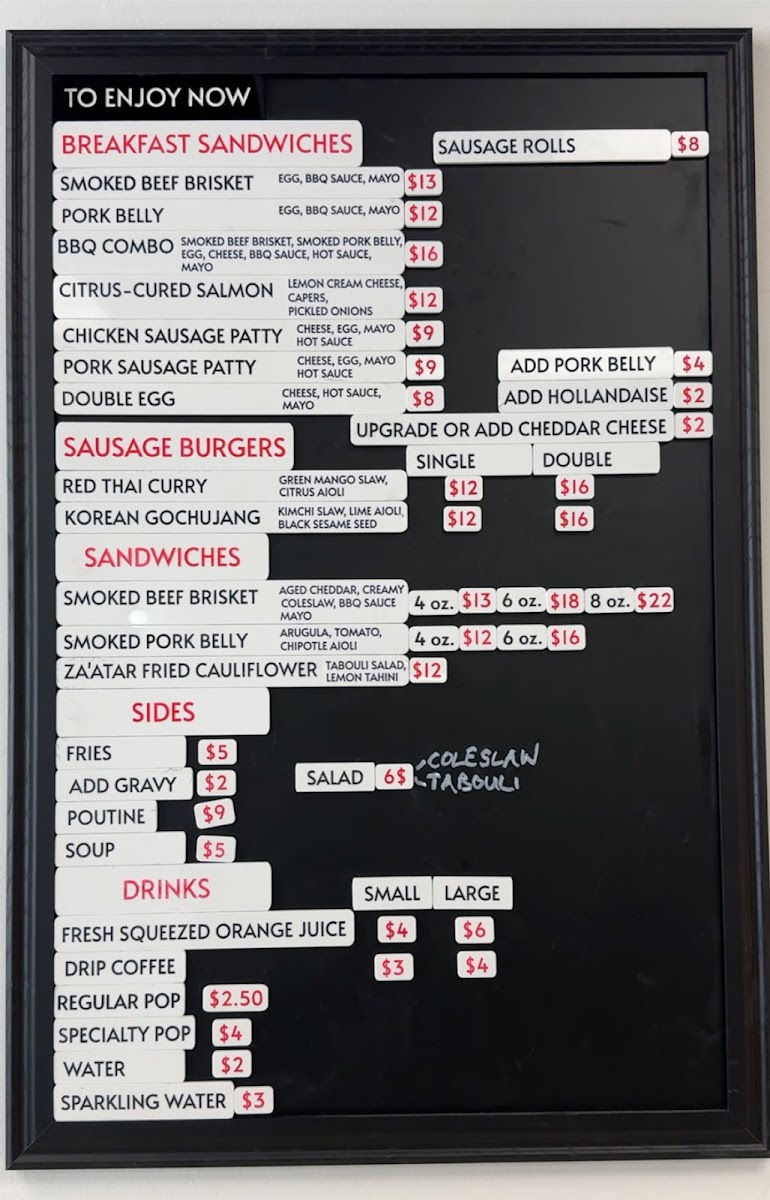 TO ENJOY NOW
BREAKFAST SANDWICHES
SAUSAGE ROLLS $8
SMOKED BEEF BRISKET EGG, BBQ SAUCE, MAYO $13
PORK BELLY EGG, BBQ SAUCE, MAYO $12
BBQ COMBO SMOKED BEEF BRISKET, SMOKED PORK BELLY,
EGG, CHEESE, BBQ SAUCE, HOT SAUCE,
MAYO $16
CITRUS-CURED SALMON LEMON CREAM CHEESE,
CAPERS,
PICKLED ONIONS $12
CHICKEN SAUSAGE PATTY CHEESE, EGG, MAYO
HOT SAUCE $9
PORK SAUSAGE PATTY CHEESE, EGG, MAYO
HOT SAUCE $9
ADD PORK BELLY $4
DOUBLE EGG CHEESE, HOT SAUCE,
MAYO $8
ADD HOLLANDAISE $2
UPGRADE OR ADD CHEDDAR CHEESE $2
SAUSAGE BURGERS
SINGLE DOUBLE
RED THAI CURRY GREEN MANGO SLAW,
CITRUS AIOLI $12 $16
KOREAN GOCHUJANG KIMCHI SLAW, LIME AIOLI,
BLACK SESAME SEED $12 $16
SANDWICHES
SMOKED BEEF BRISKET AGED CHEDDAR, CREAMY
COLESLAW, BBQ SAUCE
MAYO 4 oz. $13 6 oz. $18 8 oz. $22
SMOKED PORK BELLY ARUGULA, TOMATO,
CHIPOTLE AIOLI 4 oz. $12 6 oz. $16
ZA'ATAR FRIED CAULIFLOWER TABOULI SALAD,
LEMON TAHINI $12
SIDES
FRIES $5
ADD GRAVY $2
SALAD 6$ COLESLAW
TABOULI
POUTINE $9
SOUP $5
DRINKS
SMALL LARGE
FRESH SQUEEZED ORANGE JUICE $4 $6
DRIP COFFEE $3 $4
REGULAR POP $2.50
SPECIALTY POP $4
WATER $2
SPARKLING WATER $3